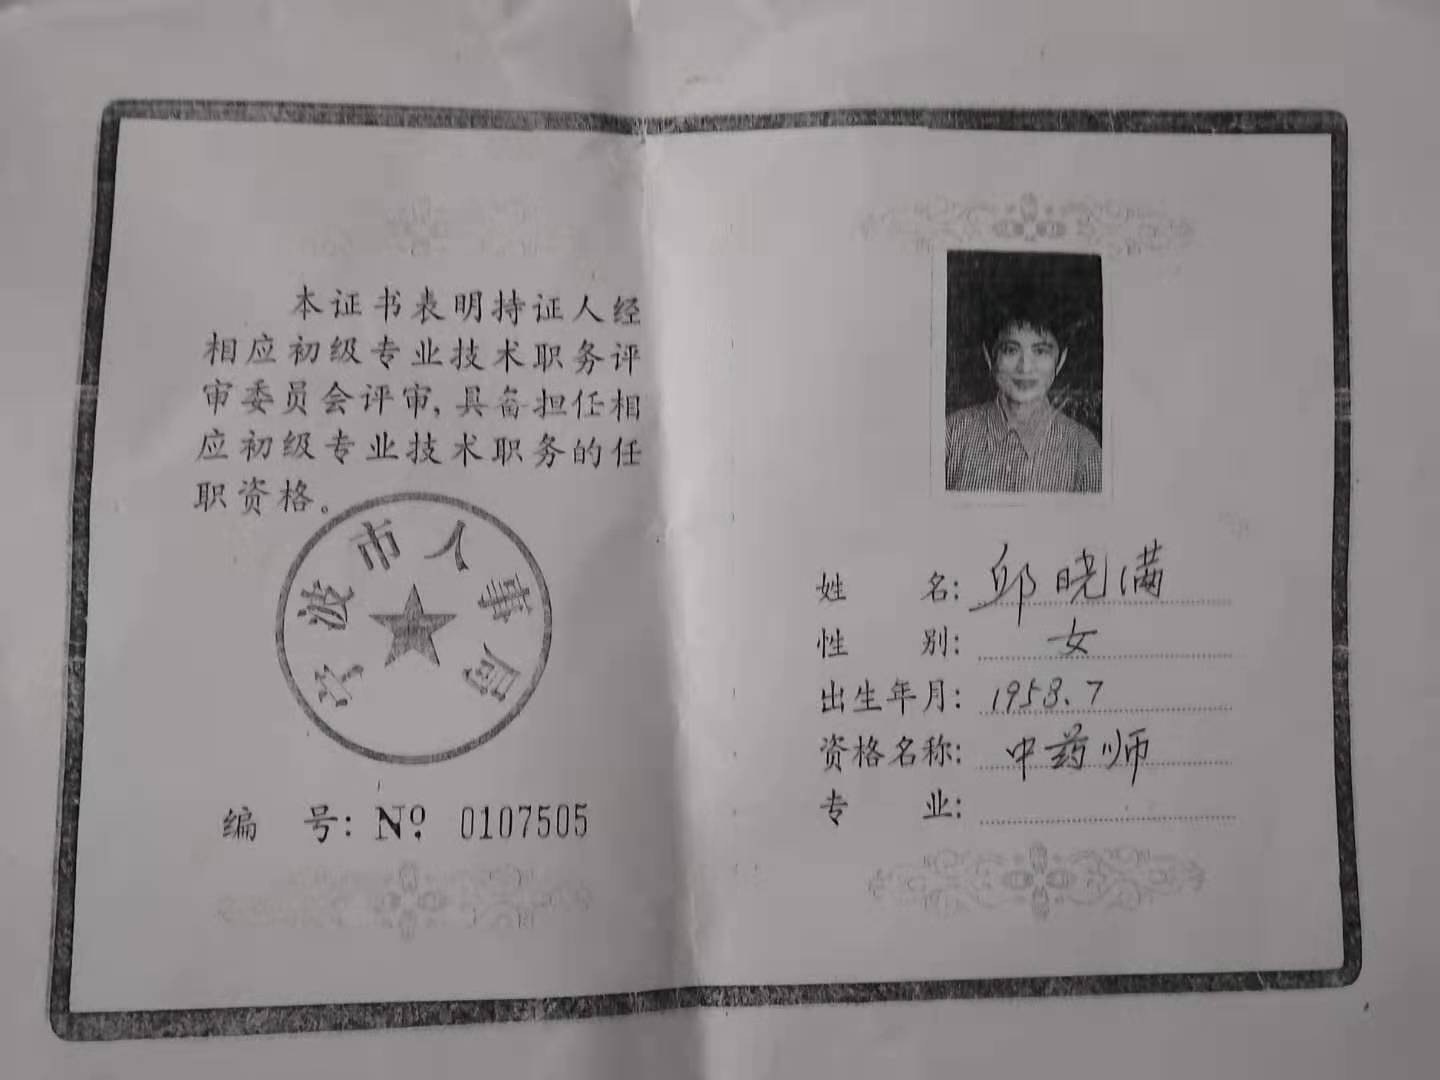 本证书表明持证人经
相应初级专业技术职务评
审委员会评审，具备担任相
应初级专业技术职务的任
职资格。
宁波市人事局
编　号：№ 0107505
姓　名：邱晓满
性　别：女
出生年月：1958.7
资格名称：中药师
专　业：